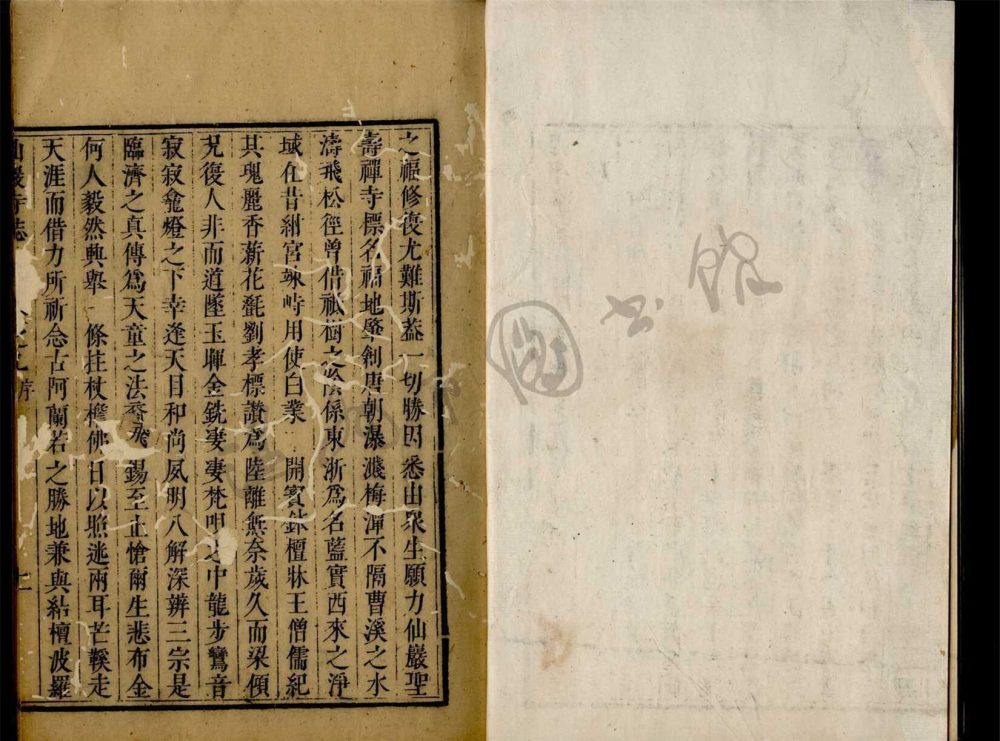 之福修復尤難斯葢一切勝因悉由衆生願力仙巖聖
壽禪寺標名福地肇創唐朝瀑濺梅潭不隔曹溪之水
濤飛松徑曾借祇樹之陰係東浙爲名藍實西來之淨
域在昔紺宮竦峙用使白業開寳銖檀牀王僧儒紀
其瑰麗香薪花㲲劉孝標讃爲陸離無奈歲久而梁傾
兄復人非而道墜玉暉金銑凄凄梵唄之中龍步鸞音
寂寂龕燈之下幸逢天目和尚夙明八解深辨三宗是
臨濟之真傳爲天童之法裔飛錫至止愴爾生悲布金
何人毅然興舉條拄杖檐佛日以照迷兩耳芒鞵走
天涯而借力所祈念古阿蘭若之勝地兼與結檀波羅
仙巖寺志 序
圖書館